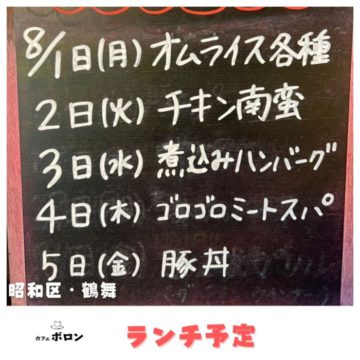 8/1日(月) オムライス各種
2日(火) チキン南蛮
3日(水) 煮込みハンバーグ
4日(木) ゴロゴロミートスパ
5日(金) 豚丼
昭和区・鶴舞
カフェ ボロン
ランチ予定